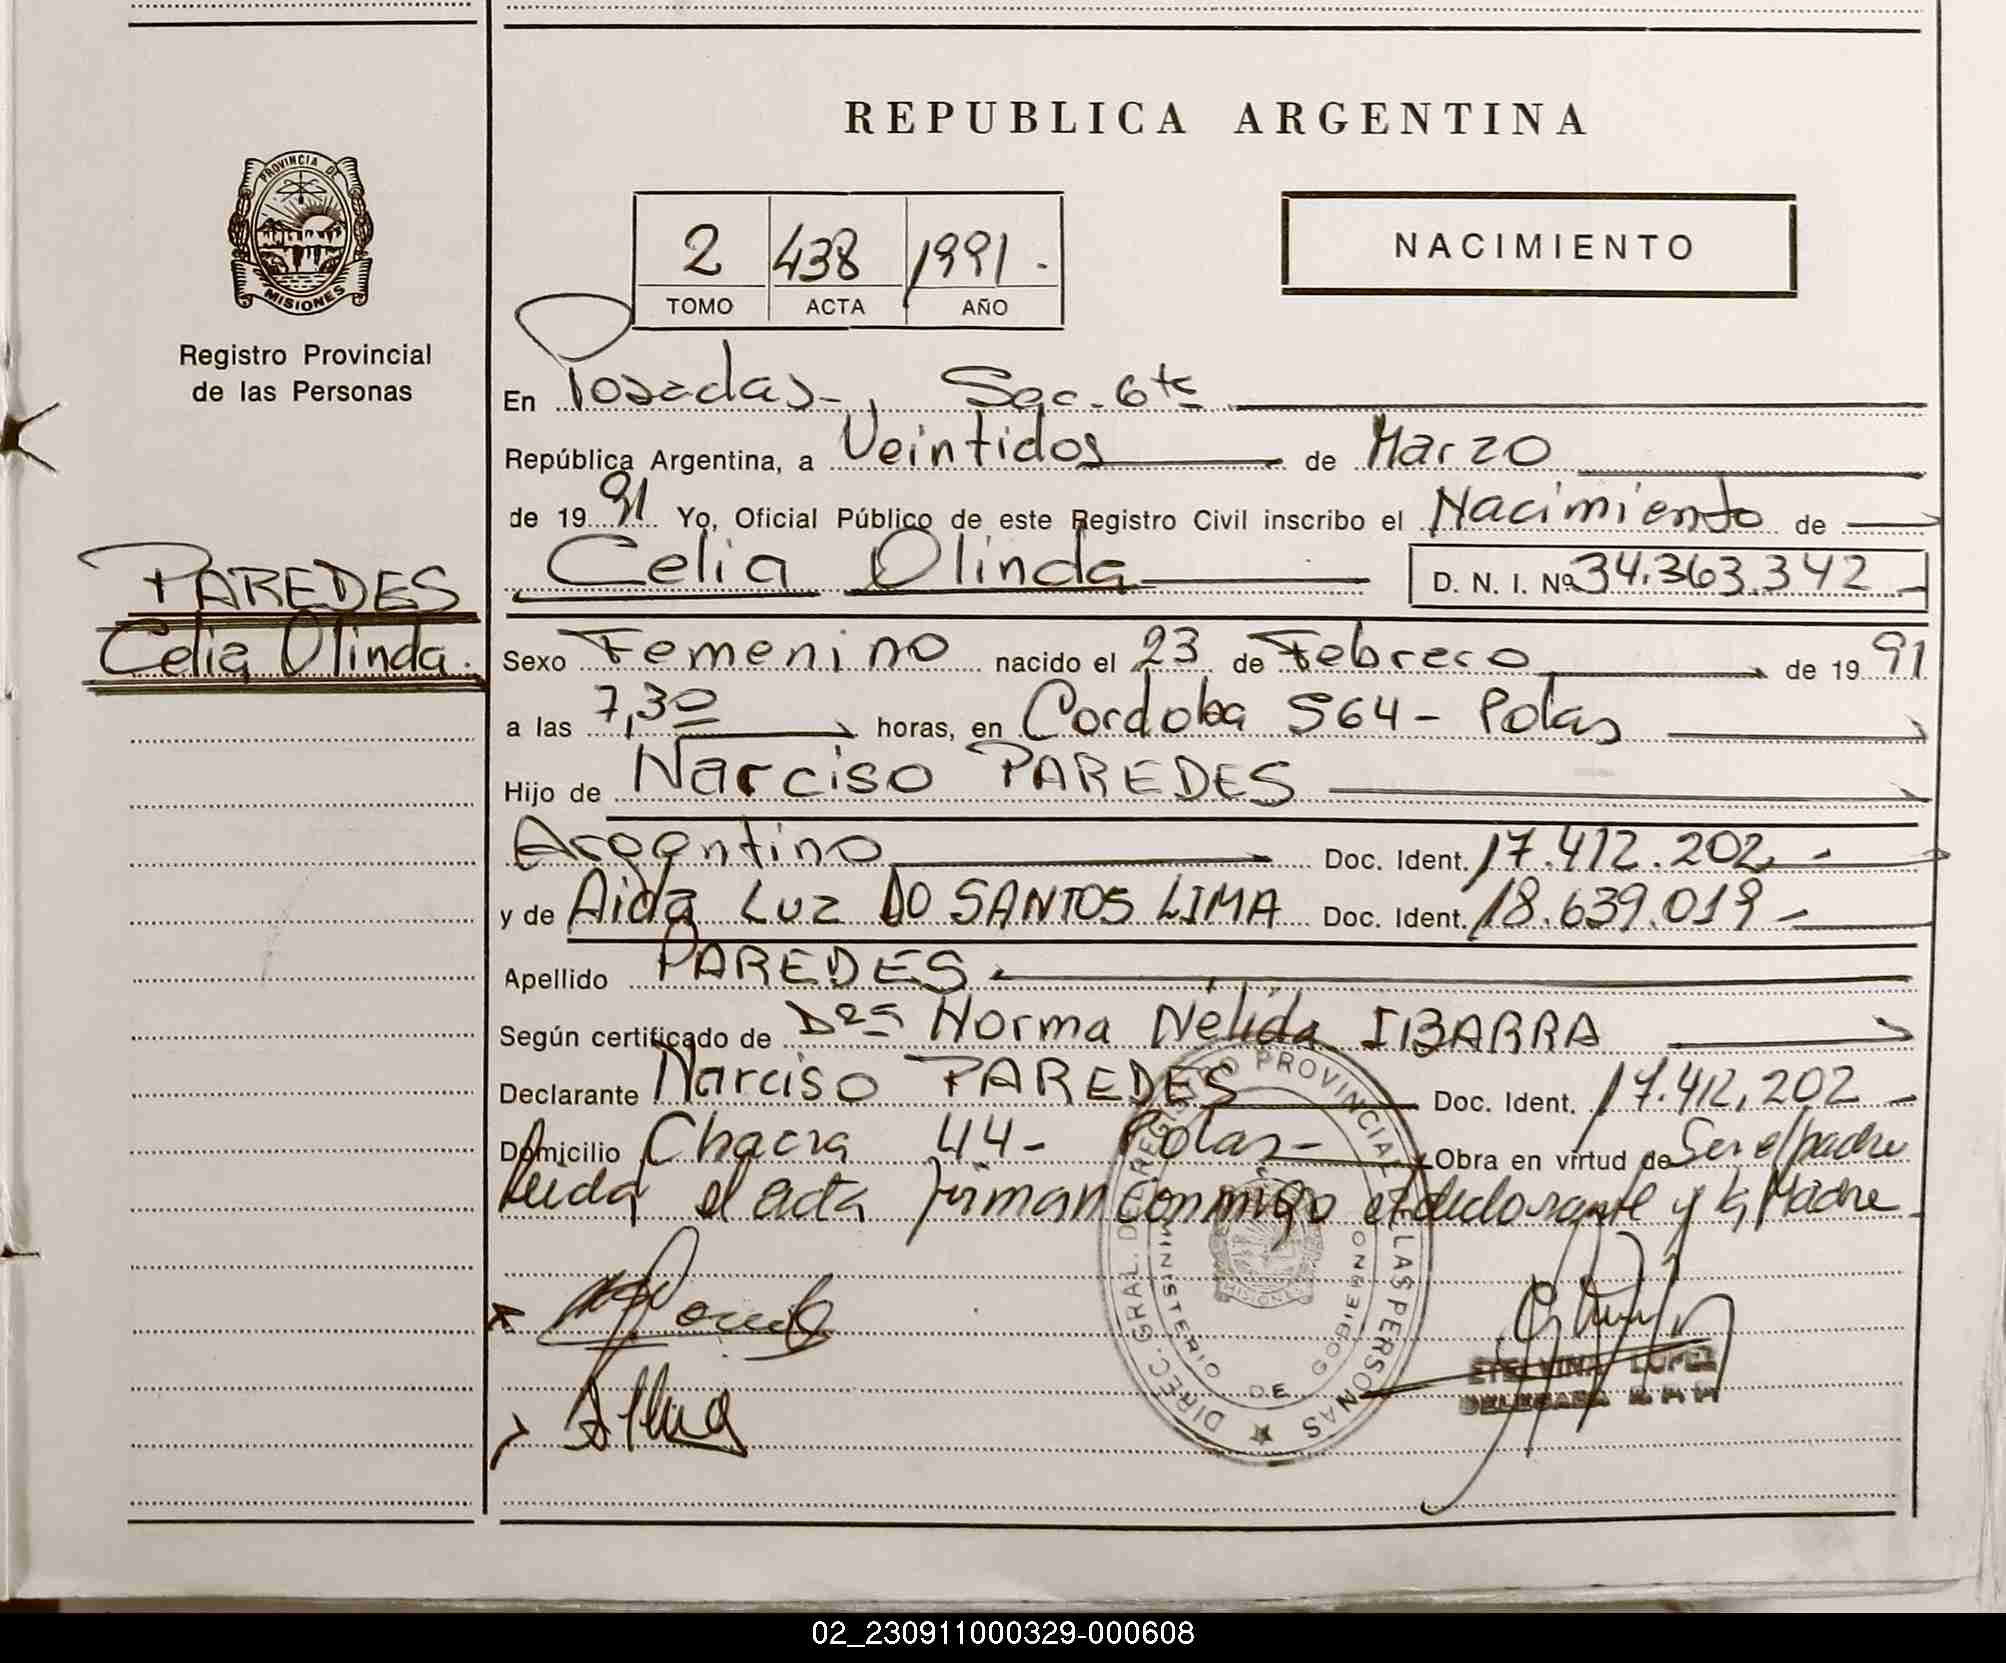 REPUBLICA ARGENTINA
PROVINCIA DE
MISIONES
Registro Provincial
de las Personas
2 438 1991.
TOMO ACTA AÑO
NACIMIENTO
En Posadas, Sec. 6ta
República Argentina, a Veintidos de Marzo
de 1991 Yo, Oficial Público de este Registro Civil inscribo el Nacimiento de
PAREDES
Celia Olinda.
Celia Olinda D. N. I. Nº 34.363.342
Sexo Femenino nacido el 23 de Febrero de 1991
a las 7,30 horas, en Cordoba 564 - Pdas
Hijo de Narciso PAREDES
Argentino Doc. Ident. 17.412.202
y de Aida Luz DO SANTOS LIMA Doc. Ident. 18.639.019
Apellido PAREDES
Según certificado de Dra Norma Nélida IBARRA
Declarante Narciso PAREDES Doc. Ident. 17.412.202
Domicilio Chacra 44 - Pdas - Obra en virtud de Ser el padre
Leida el acta firman conmigo el declarante y la Madre
DIREC. GRAL. DEL REGISTRO PROVINCIAL DE LAS PERSONAS
MINISTERIO DE GOBIERNO
MISIONES
ETELVINA LOPEZ
DELEGADA
02_230911000329-000608